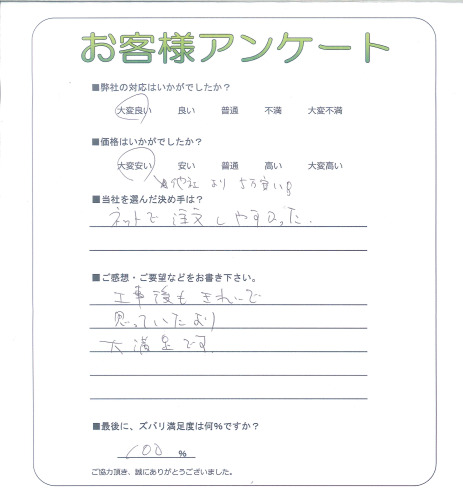 お客様アンケート
■弊社の対応はいかがでしたか？
大変良い 良い 普通 不満 大変不満
■価格はいかがでしたか？
大変安い 安い 普通 高い 大変高い
他社より 5万安い
■当社を選んだ決め手は？
ネットで注文しやすかった.
■ご感想・ご要望などをお書き下さい。
工事後もきれいで
思っていたより
大満足です.
■最後に、ズバリ満足度は何%ですか？
100 %
ご協力頂き、誠にありがとうございました。